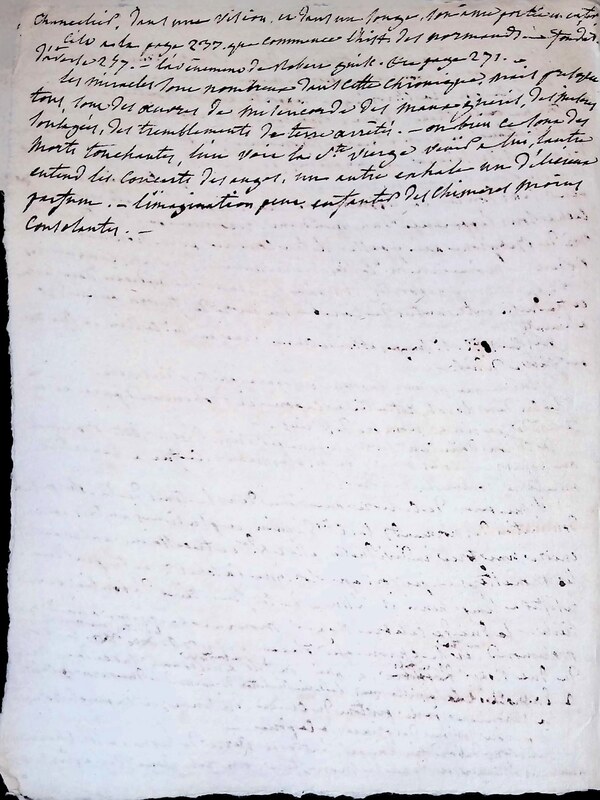 dans une vision, ou dans un songe, son ame portée en enfer
C'est à la page 237 que commence l'hist. des normands. —
d'averse 247. — l'avènement de Robert guisk. page 271. —
les miracles sont nombreux dans cette chronique, mais presque
tous, sont des œuvres de miséricorde des maux guéris, des
soulagés, des tremblements de terre arrêtés. — ou bien ce sont des
morts touchantes, l'un voit la Ste Vierge venir à lui, l'autre
entend les concerts des anges, un autre exhale un délicieux
parfum. — l'imagination peut enfanter des chimères moins
Consolantes. —